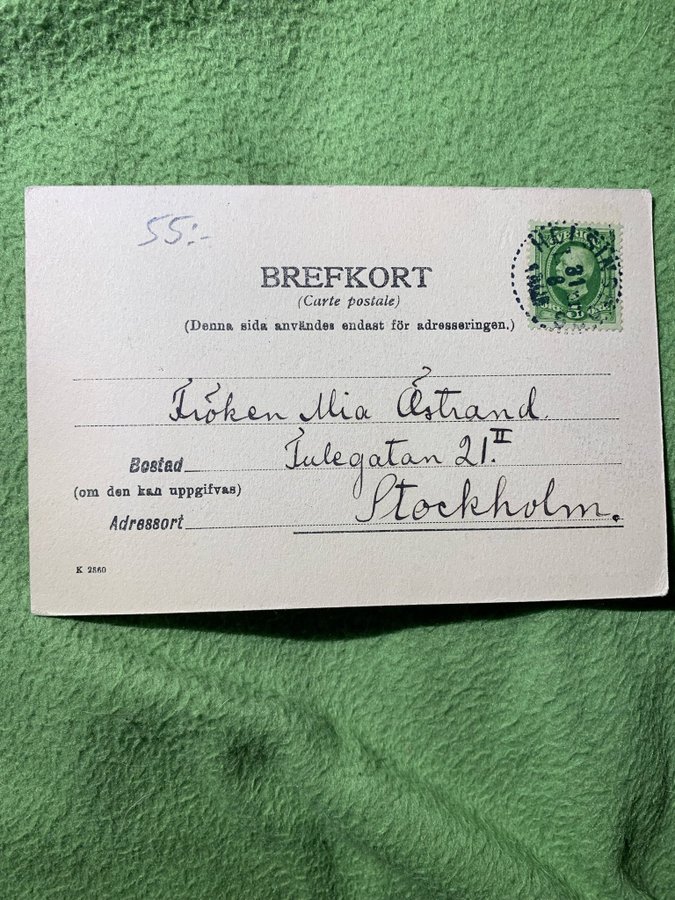 55:-
BREFKORT
(Carte postale)
(Denna sida användes endast för adresseringen.)
Fröken Mia Östrand.
Bostad Tulegatan 21.II
(om den kan uppgifvas)
Adressort Stockholm.
K 2860